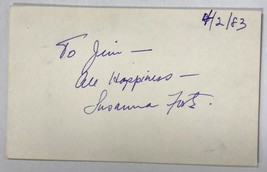 4/2/83
To Jim —
All Happiness —
Susanna Foster